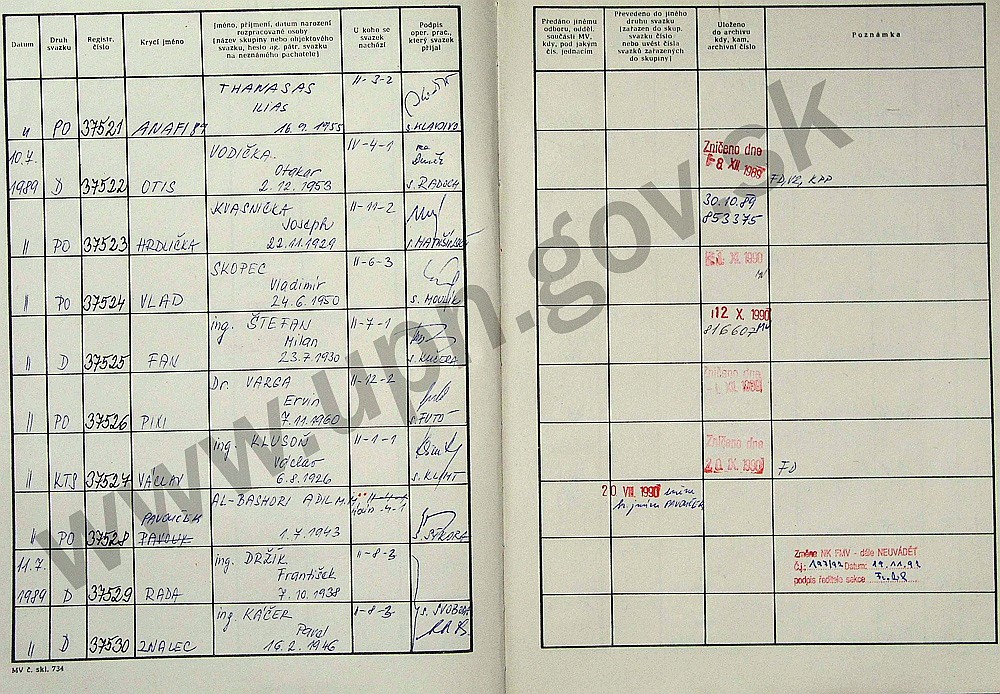 Datum
Druh svazku
Registr. číslo
Krycí jméno
Jméno, příjmení, datum narození
rozpracované osoby
(název skupiny nebo objektového
svazku, heslo ag. pátr. svazku
na neznámého pachatele)
U koho se
svazek
nachází
Podpis
oper. prac.,
který svazek
přijal
Předáno jinému
odboru, odděl.
součásti MV,
kdy, pod jakým
čís. jednacím
Převedeno do jiného
druhu svazku
(zařazen do skup.
svazku číslo:
nebo uvést čísla
svazků zařazených
do skupiny)
Uloženo
do archivu
kdy, kam,
archivní číslo
Poznámka
THANASAS II-3-2
ILIAS
16.9.1955
" PO 37521 ANAFI 89 s. KLADIVO
10.7. VODIČKA IV-4-1
Otakar
1989 D 37522 OTIS 2.12.1953 s. RADOCH
Zničeno dne
-8. XII. 1989
KVASNIČKA II-11-2
Joseph
" PO 37523 HRDLIČKA 22.11.1929
30.10.89
853375
SKOPEC II-6-3
Vladimír
" PO 37524 VLAD 24.6.1950
XI. 1990
ing. ŠTEFAN II-7-1
Milan
" D 37525 FAN 23.7.1930 s. KUČERA
12 X. 1990
816607
Dr. VARGA II-12-2
Ervin
" PO 37526 PIXI 7.11.1960 s. FUTÓ
Zničeno dne
-1. XII. 1989
ing. KLUSOŇ II-1-1
Václav
" KTS 37527 VÁCLAV 6.8.1926 s. KLIMT
Zničeno dne
20. IX. 1990
AL-BASHORI ADIL M.
PAVOUČEK
" PO 37528 PAVOUK 1.7.1943 s. SÝKORA
20 VIII. 1990
11.7. ing. DRŽÍK II-8-3
František
1989 D 37529 RADA 7.10.1938
Změna NK FMV - dále NEUVÁDĚT
Č.j.: 197/92 Datum: 19.11.92
podpis ředitele sekce
ing. KÁČER II-8-3 s. SVOBODA
Pavel
" D 37530 ZNALEC 16.2.1946
MV č. skl. 734
www.upn.gov.sk